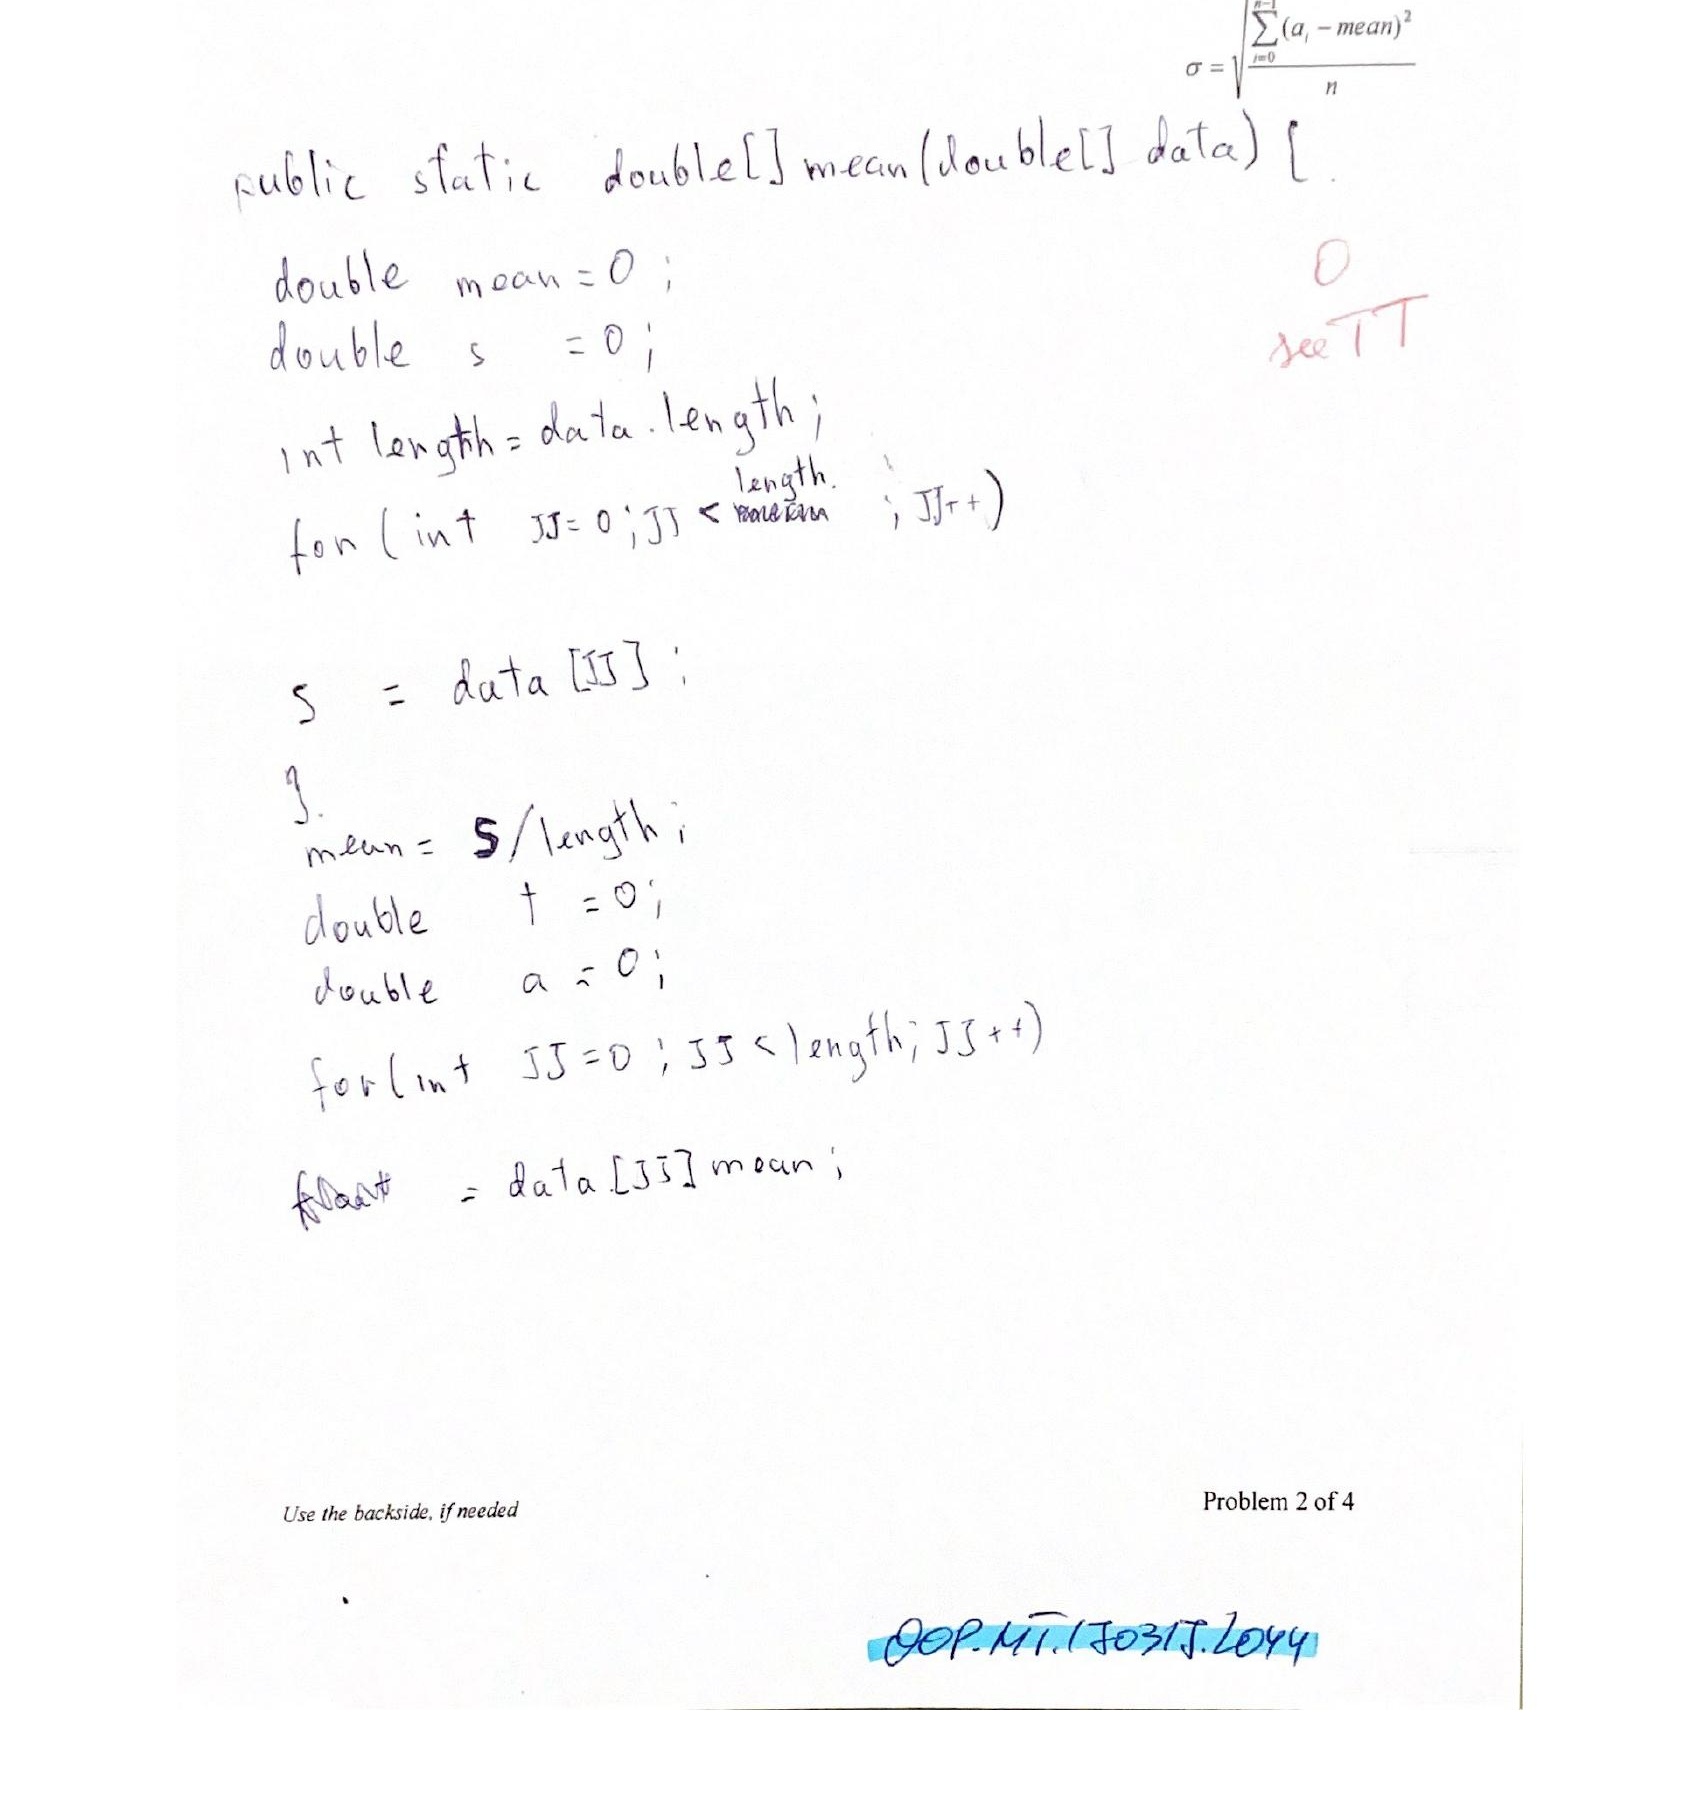 σ = √( ∑ i=0 n-1 (a i − mean)² / n )
public static double[] mean(double[] data) {
0
see TT
double mean = 0 ;
double s = 0 ;
int length = data.length ;
length
for ( int JJ = 0 ; JJ < ; JJ++)
s = data [JJ] ;
}
mean = S/length ;
double t = 0 ;
double a = 0 ;
for(int JJ = 0 ; JJ < length ; JJ++)
= data [JJ] mean ;
Use the backside, if needed
Problem 2 of 4
OOP.MT.150315.2044